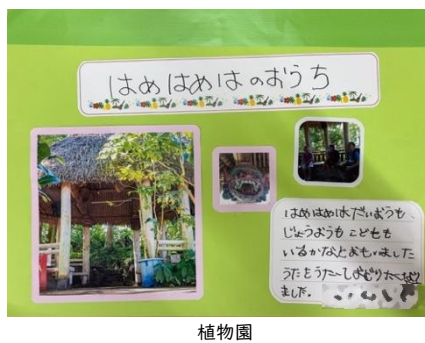 はめはめはのおうち
はめはめはだいおうも、
じょうおうも こどもも
いるかなとおもいました
うたをうたいしおどりたくなり
ましだ。
植物園